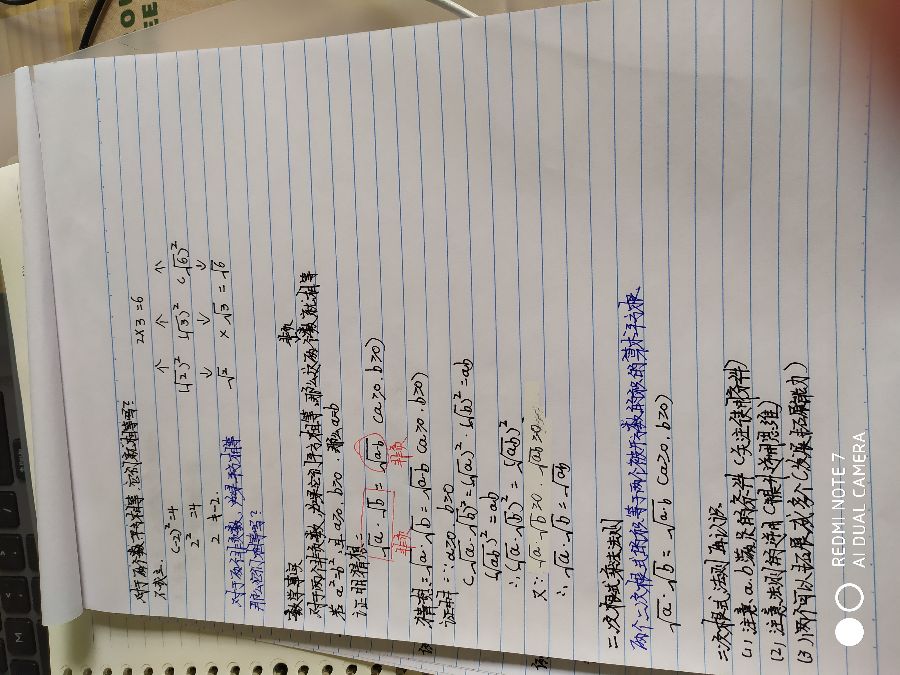 对于两个数平方相等 它们就相等吗?
2×3=6
不成立.
↑ ↑ ↑
(-2)²=4
(√2)² (√3)² (√6)²
2²=4
↓ ↓ ↓
2≠-2.
√2 × √3 = √6
对于两个非负数,如果平方相等
那么它们相等吗?
数学事实
非负
对于两个非负数,如果它们平方相等,那么这两个数就相等
若 a²=b² 且 a≥0. b≥0. 那么a=b
证明猜想:
√a · √b = √a·b (a≥0. b≥0)
非负 非负
猜想:√a · √b = √ab (a≥0. b≥0)
证明:∵a≥0. b≥0
(√a · √b)² = (√a)² · (√b)² = ab
(√ab)² = ab
∴(√a · √b)² = (√ab)²
又∵ √a · √b≥0. √ab≥0.
∴ √a · √b = √ab
二次根式乘法法则
两个二次根式的积等于两个被开方数的积的算术平方根.
√a · √b = √a·b (a≥0. b≥0)
二次根式法则再认识.
(1) 注意a.b满足的条件 (关注使用条件)
(2) 注意法则的逆用 (提升逆向思维)
(3) 两个可以拓展成多个 (发展拓展能力)
REDMI NOTE 7
AI DUAL CAMERA